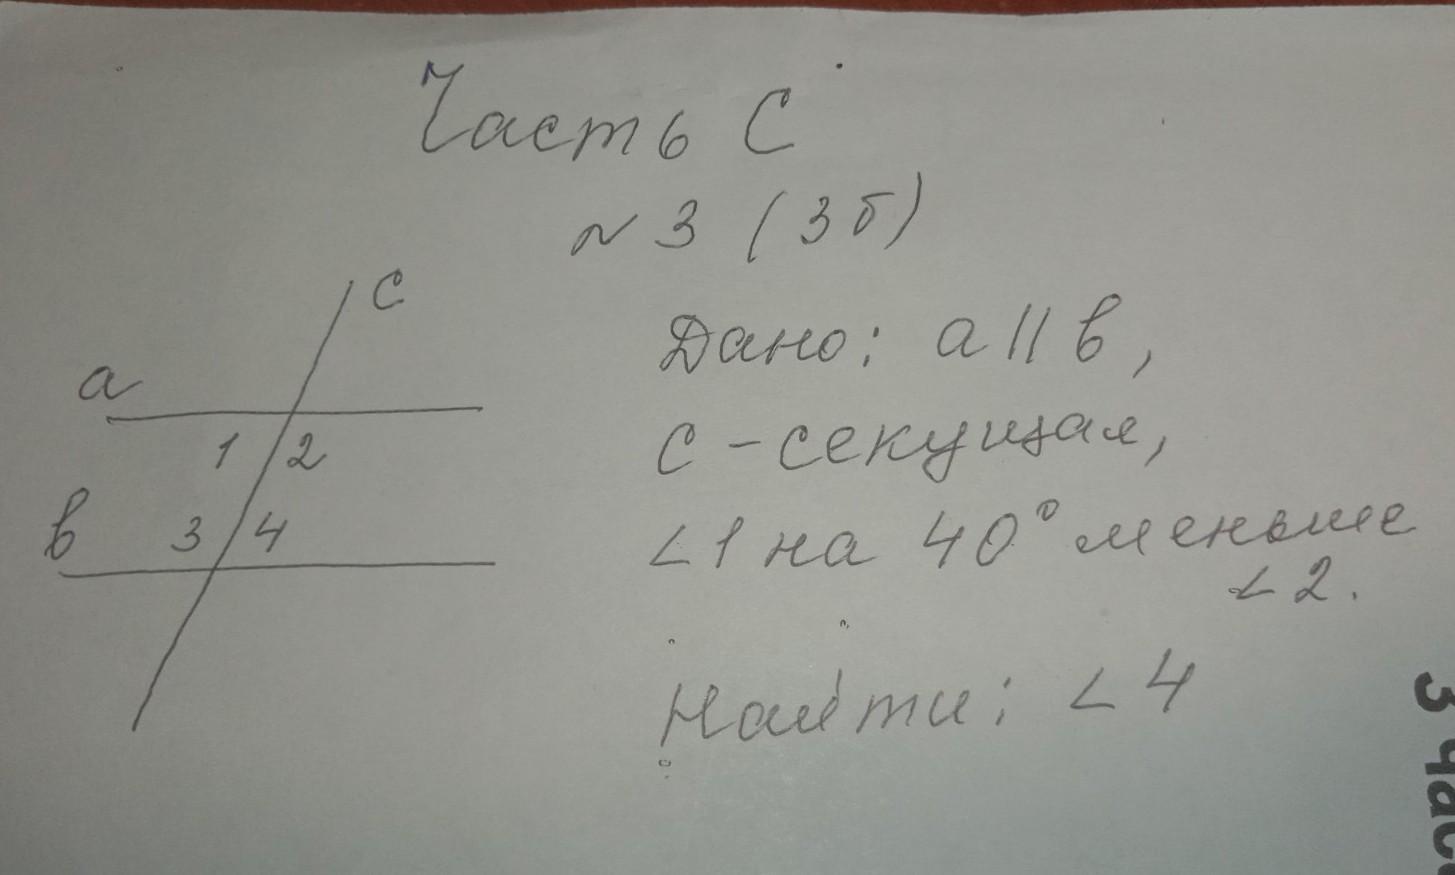 Часть С
№ 3 (3б)
c
a
1 2
в
3 4
Дано: a || в,
с - секущая,
∠1 на 40° меньше
∠2.
Найти: ∠4
3 час